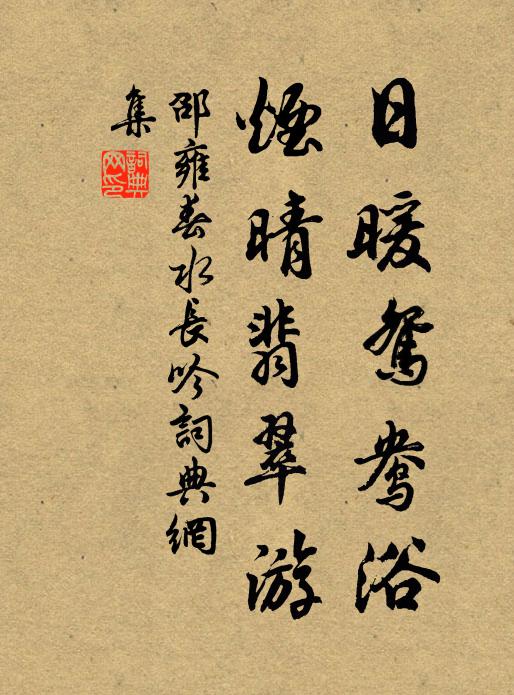 日暖鴛鴦浴
煙晴翡翠游
邵雍春水長吟詞典網
集
詞典網印